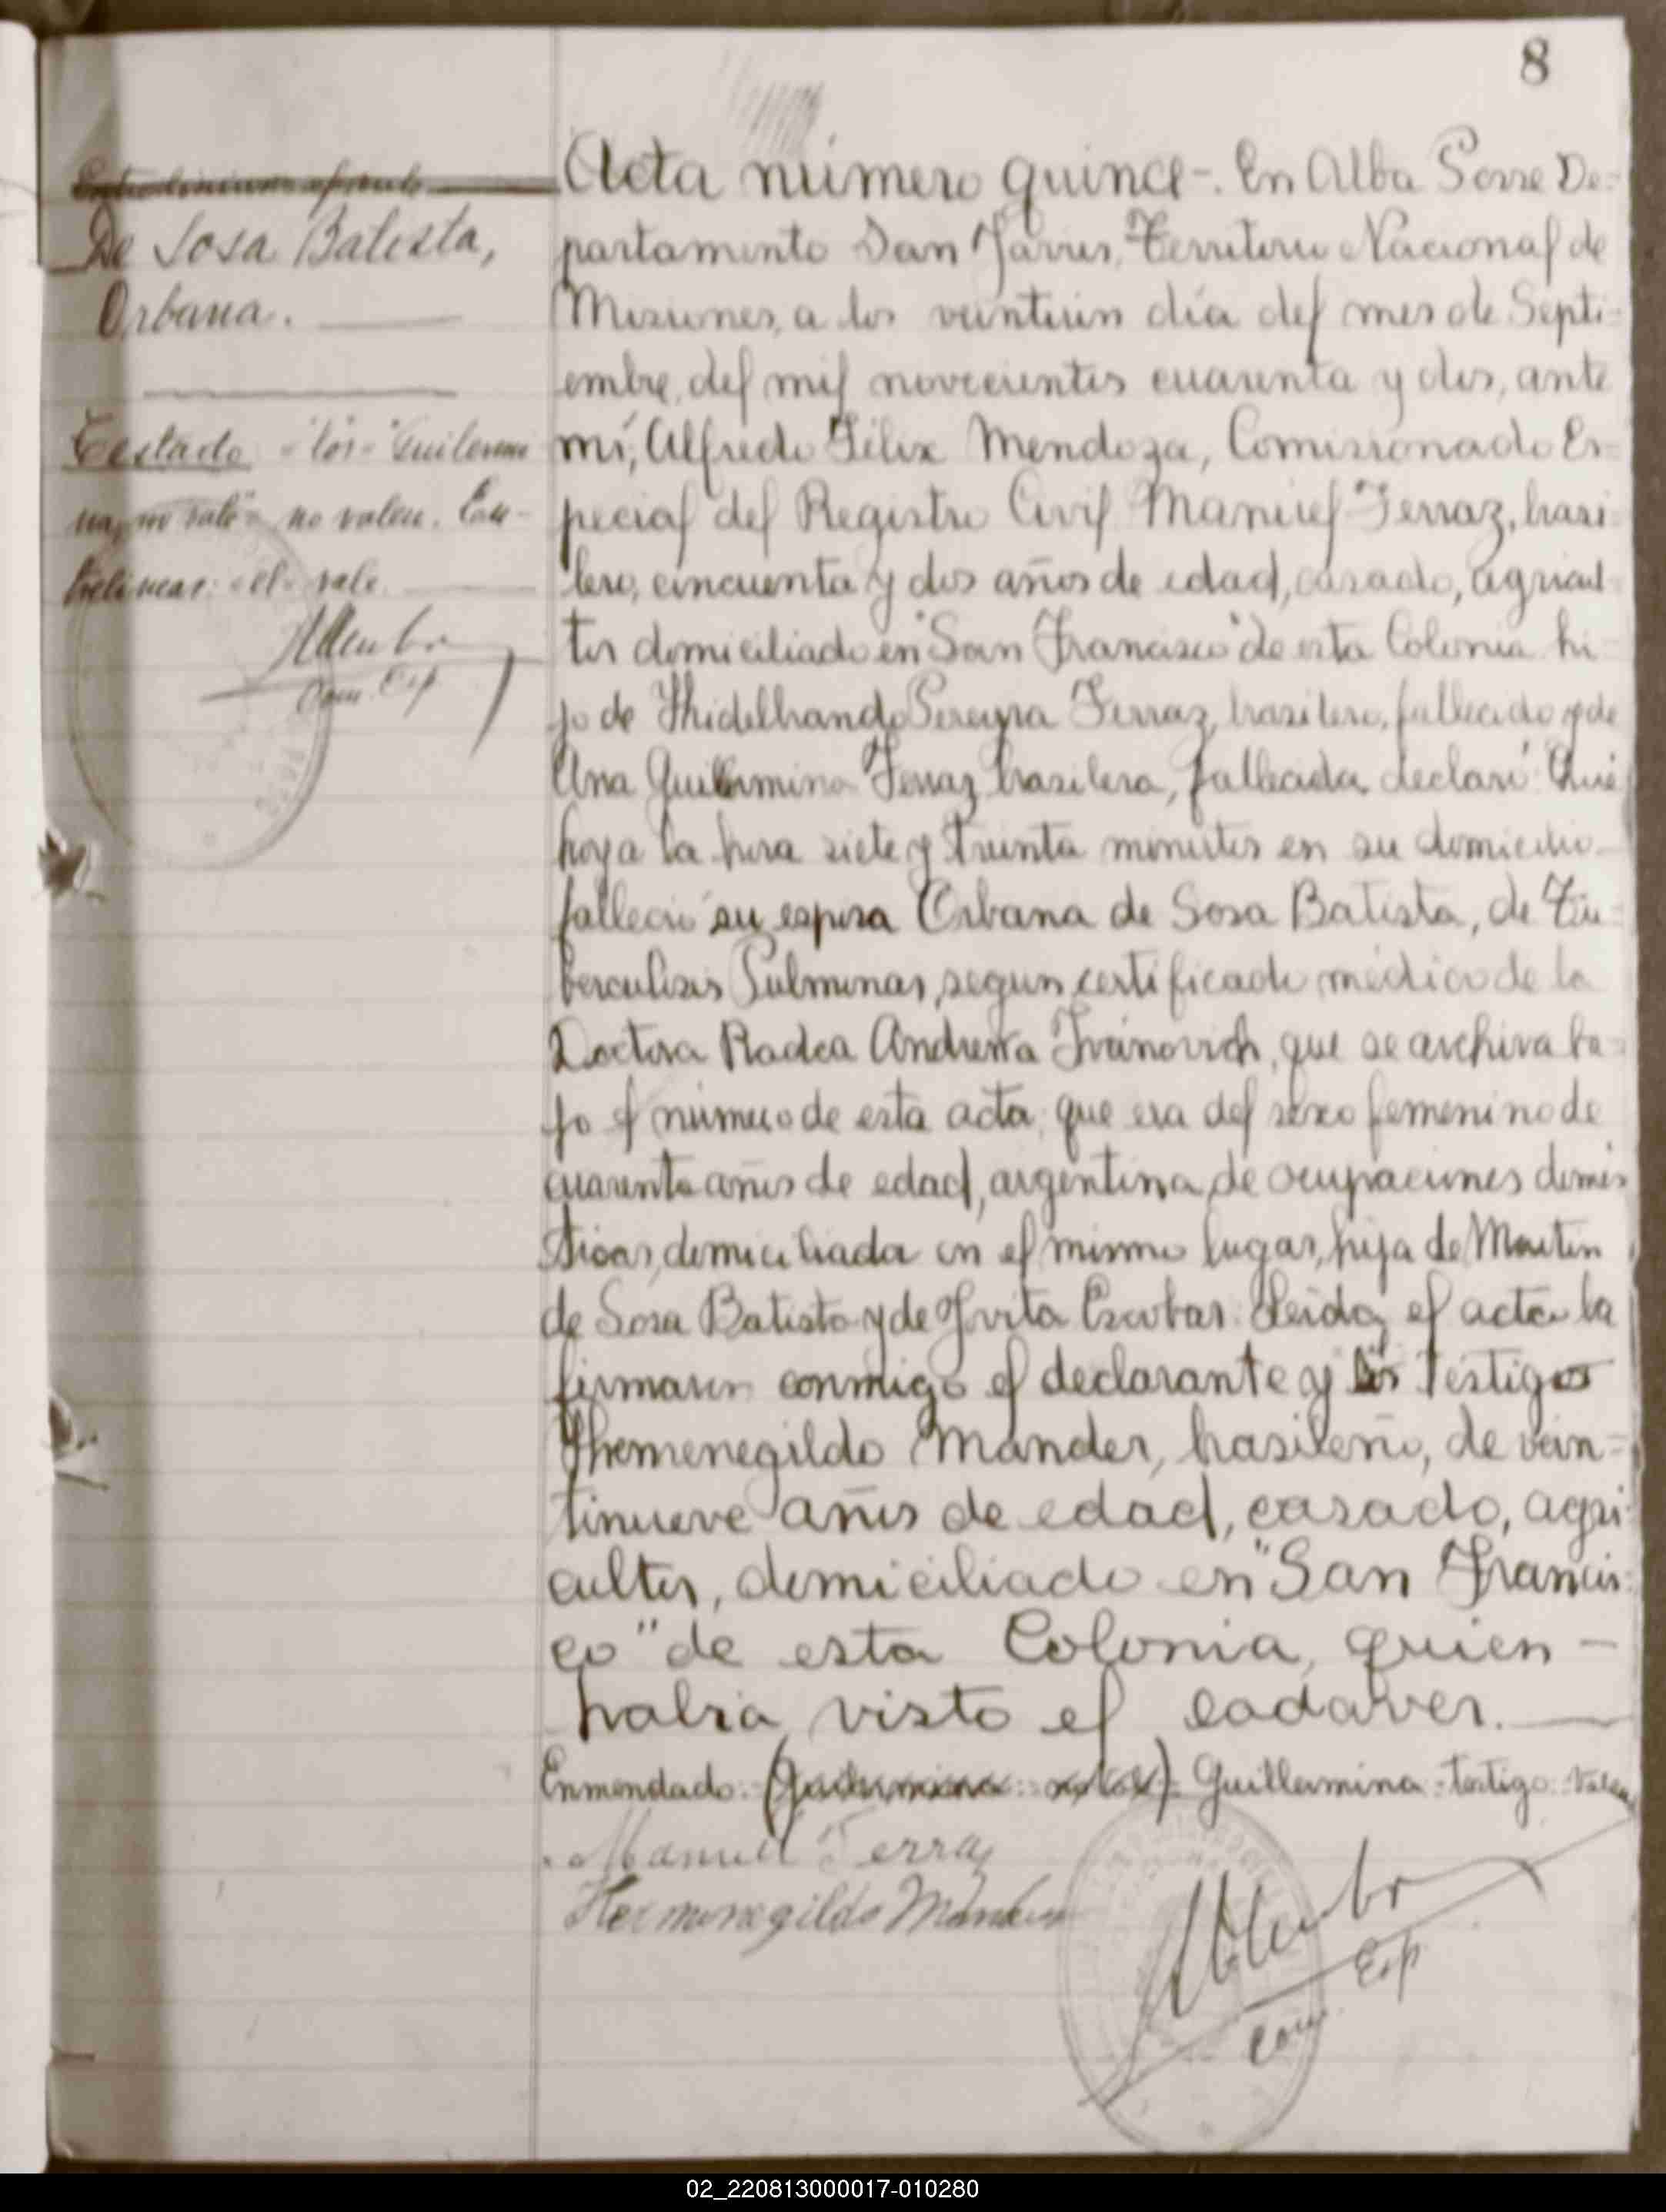 8
De Sosa Batista,
Orbana.
Testado "los" Guilermi
na, no vale" no valen. En-
trelineas: "el" vale.
Com. Esp
Acta número quince-. En Alba Posse De-
partamento San Javier, Territorio Nacional de
Misiones, a los veintiún día del mes de Septi-
embre, del mil novecientos cuarenta y dos, ante
mí, Alfredo Félix Mendoza, Comisionado Es-
pecial del Registro Civil Manuel Ferraz, brasi-
lero, cincuenta y dos años de edad, casado, agricul-
tor domiciliado en "San Francisco" de esta Colonia hi-
jo de Hhidelbrando Pereyra Ferraz, brasilero, fallecido y de
Ana Guillermina Ferraz brasilera, fallecida, declaró: Que
hoy a la hora siete y treinta minutos en su domicilio
falleció su esposa Orbana de Sosa Batista, de Tu-
berculosis Pulmonar, segun certificado médico de la
Doctora Radea Andrewa Ivanovich, que se archiva ba-
jo el número de esta acta; que era del sexo femenino de
cuarenta años de edad, argentina, de ocupaciones domés
ticas, domiciliada en el mismo lugar, hija de Martin
de Sosa Batista y de Jovita Escobar. Leida el acta la
firmaron conmigo el declarante y los testigos
Hhemenegildo Mander, brasileño, de vein-
tinueve años de edad, casado, agri-
cultor, domiciliado en "San Francis-
co" de esta Colonia, quien-
habia visto el cadaver.
Enmendado: (Guilermina: no vale)- Guillermina-testigo: Valen
Manuel Ferraz
Hermenegildo Mander
Com. Esp
02_220813000017-010280